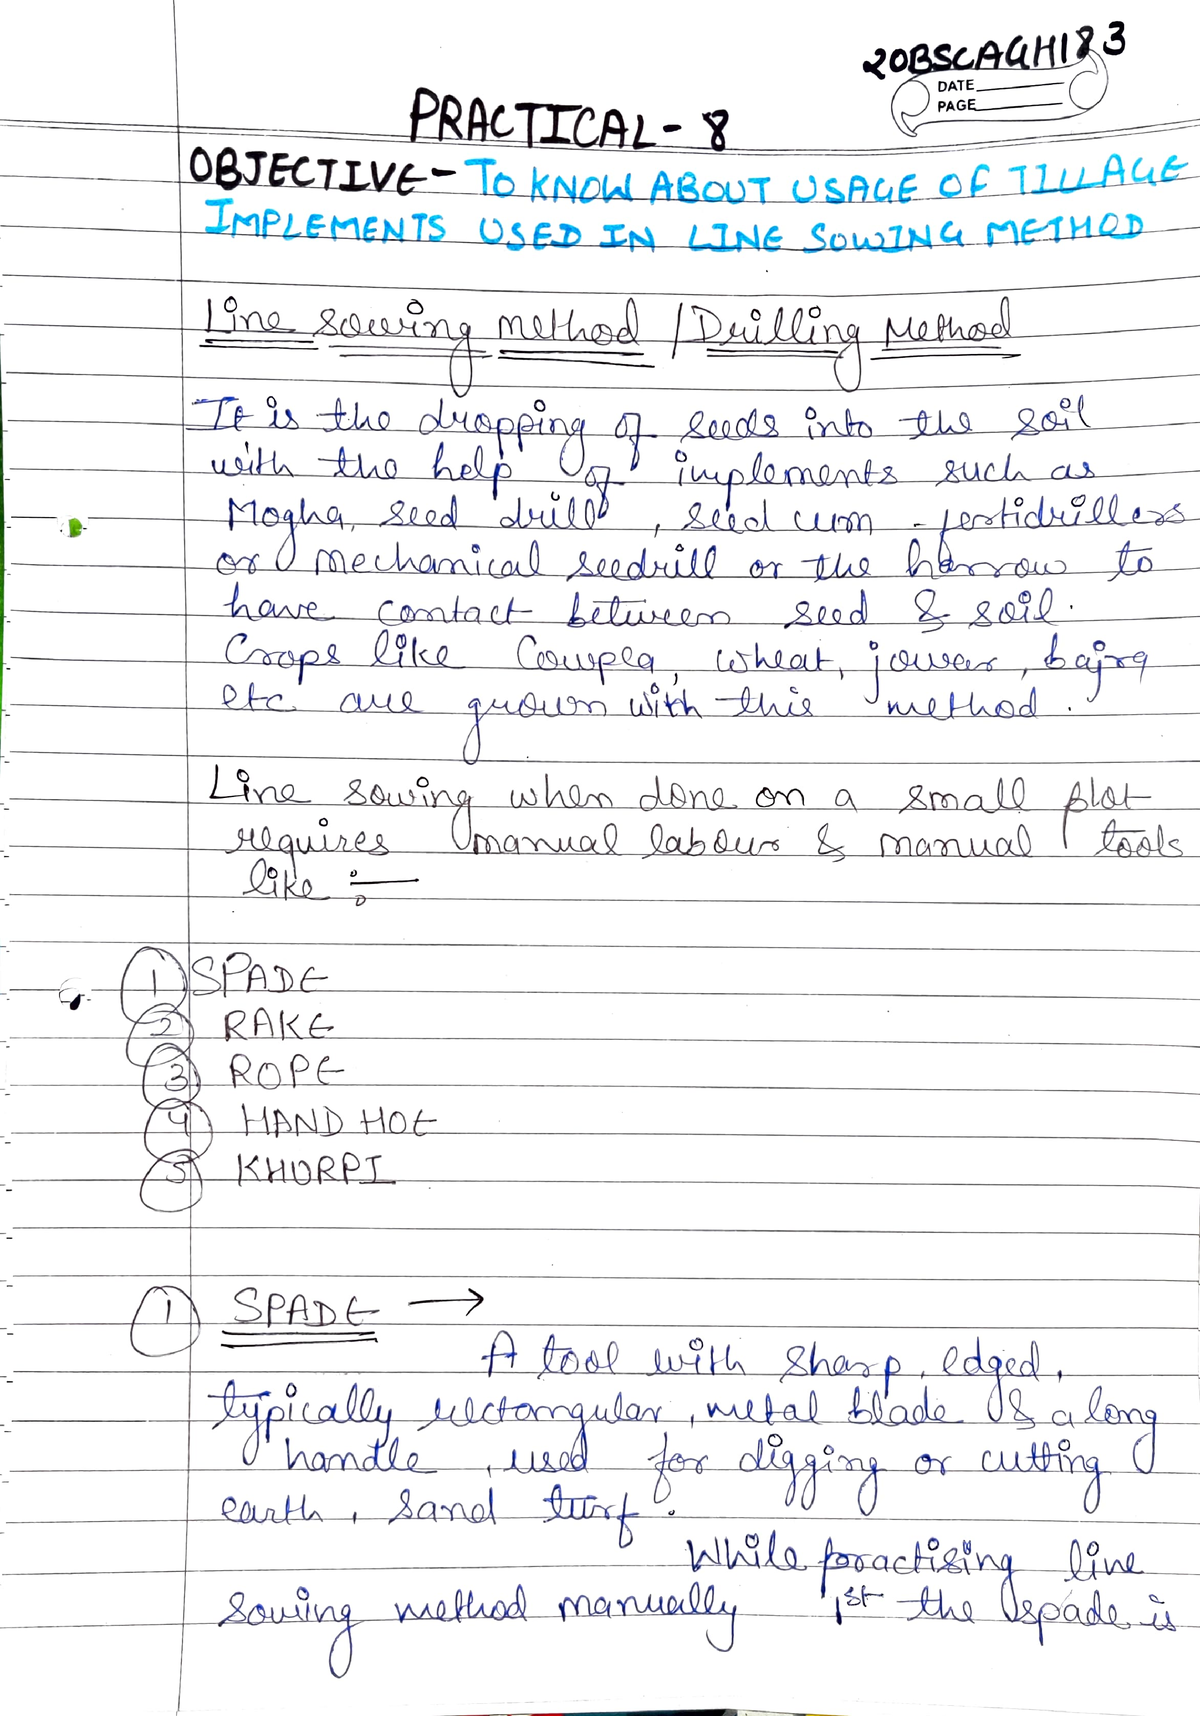 20BSCAGH183
DATE
PAGE
PRACTICAL - 8
OBJECTIVE - TO KNOW ABOUT USAGE OF TILLAGE
IMPLEMENTS USED IN LINE SOWING METHOD
Line sowing method / Drilling Method
It is the dropping of seeds into the soil
with the help of implements such as
Mogha, seed drill, seed cum - fertidrillers
or mechanical seedrill or the harrow to
have contact between seed & soil.
Crops like Cowpea, wheat, jowar, bajra
etc. are grown with this method.
Line sowing when done on a small plot
requires manual labour & manual tools
like :-
1 SPADE
2 RAKE
3 ROPE
4 HAND HOE
5 KHURPI
1 SPADE →
A tool with sharp, edged,
typically rectangular, metal blade & a long
handle, used for digging or cutting
earth, sand turf.
While practising line
sowing method manually 1st the spade is